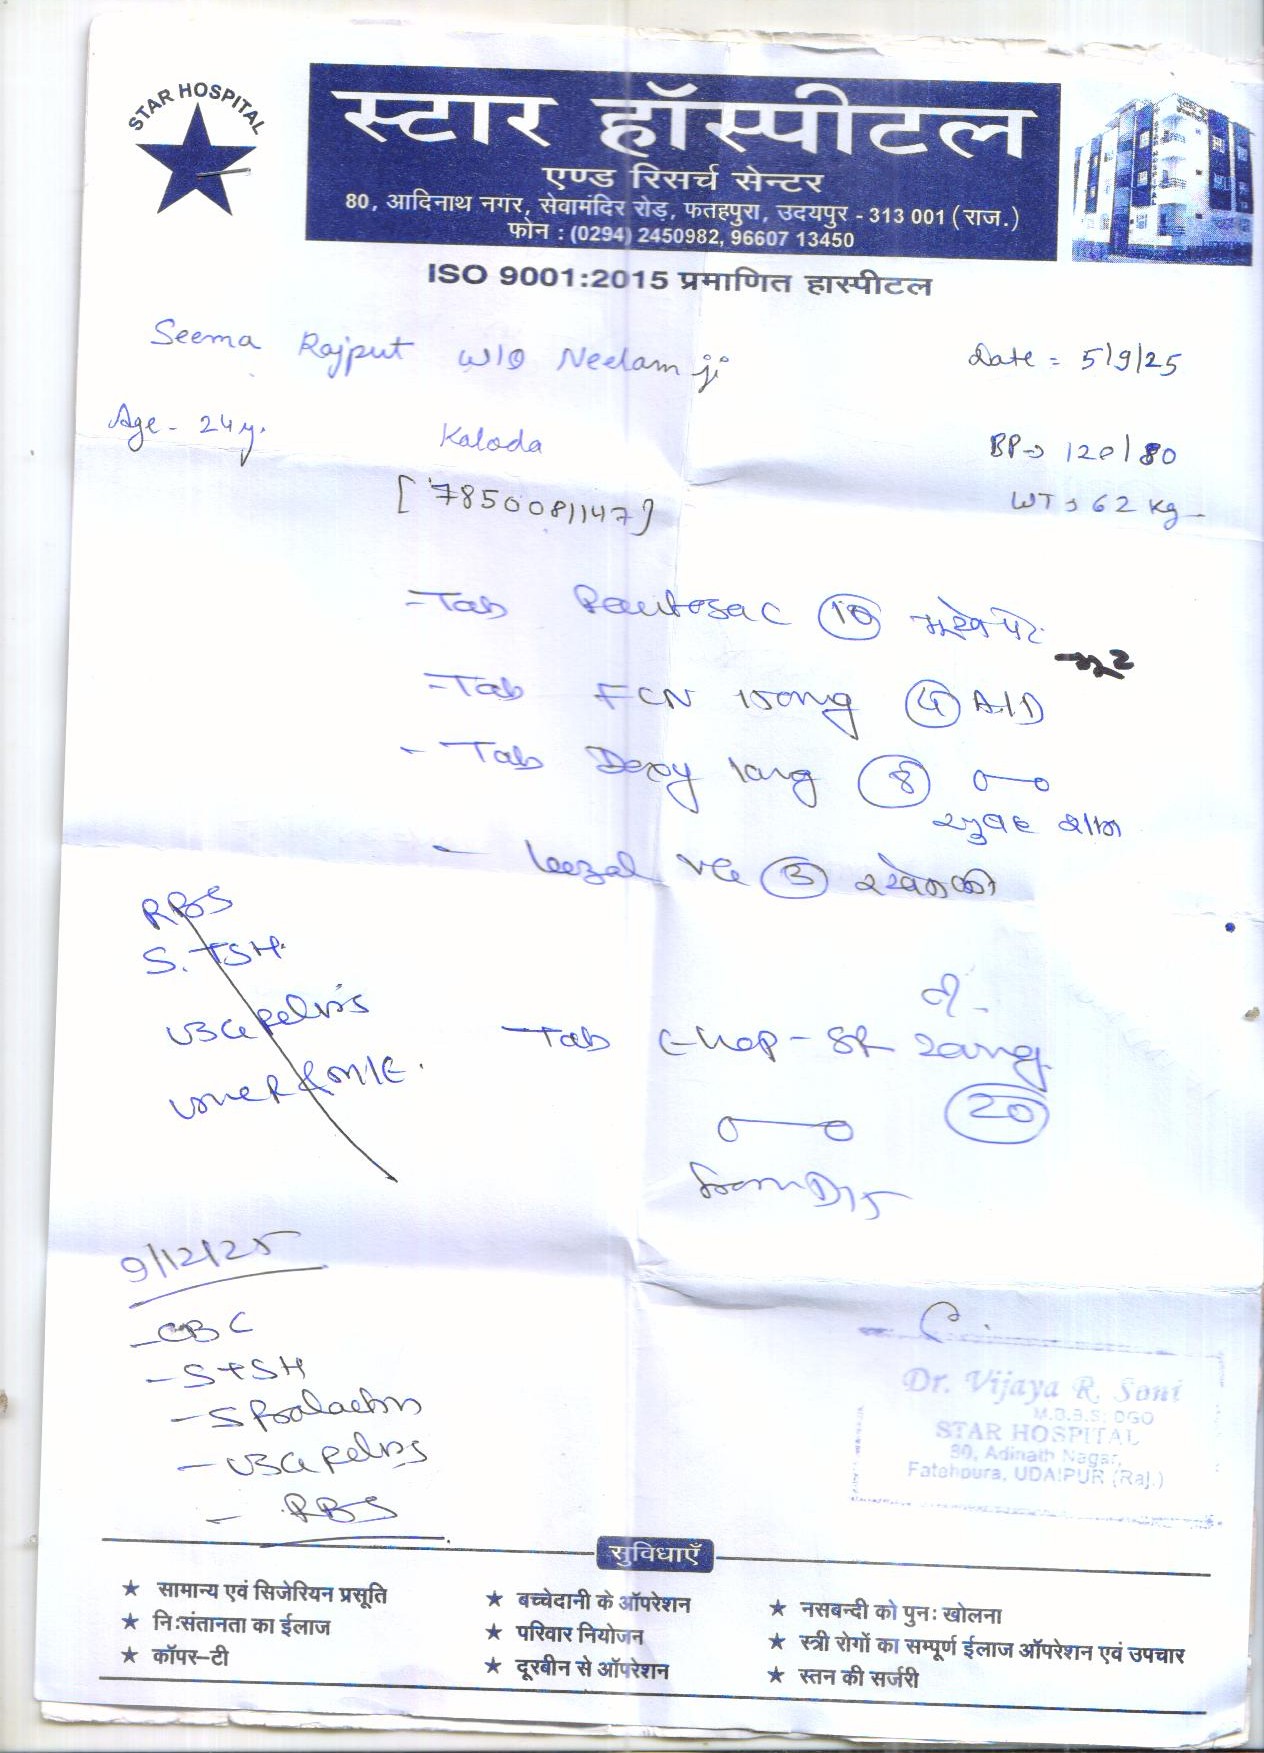 STAR HOSPITAL
स्टार हॉस्पीटल
एण्ड रिसर्च सेन्टर
80, आदिनाथ नगर, सेवामंदिर रोड़, फतहपुरा, उदयपुर - 313 001 (राज.)
फोन : (0294) 2450982, 96607 13450
ISO 9001:2015 प्रमाणित हास्पीटल
Seema Rajput w/o Neelam ji
Date = 5/9/25
Age - 24 y.
Kaloda
BP→ 120/80
[7850081147]
WT→ 62 kg
-Tab Pantosac (10)
-Tab FCN 150mg (4) A/D
- Tab Doxy (8)
सुबह शाम
- (3)
RBS
S. TSH.
USG Pelvis
Urine R & M/E.
-Tab
(20)
From D15
9/12/25
- CBC
- S TSH
- S Prolactin
- USG Pelvis
- RBS
Dr. Vijaya R. Soni
M.B.B.S; DGO
STAR HOSPITAL
80, Adinath Nagar,
Fatehpura, UDAIPUR (Raj.)
सुविधाएँ
★ सामान्य एवं सिजेरियन प्रसूति
★ नि:संतानता का ईलाज
★ कॉपर-टी
★ बच्चेदानी के ऑपरेशन
★ परिवार नियोजन
★ दूरबीन से ऑपरेशन
★ नसबन्दी को पुन: खोलना
★ स्त्री रोगों का सम्पूर्ण ईलाज ऑपरेशन एवं उपचार
★ स्तन की सर्जरी